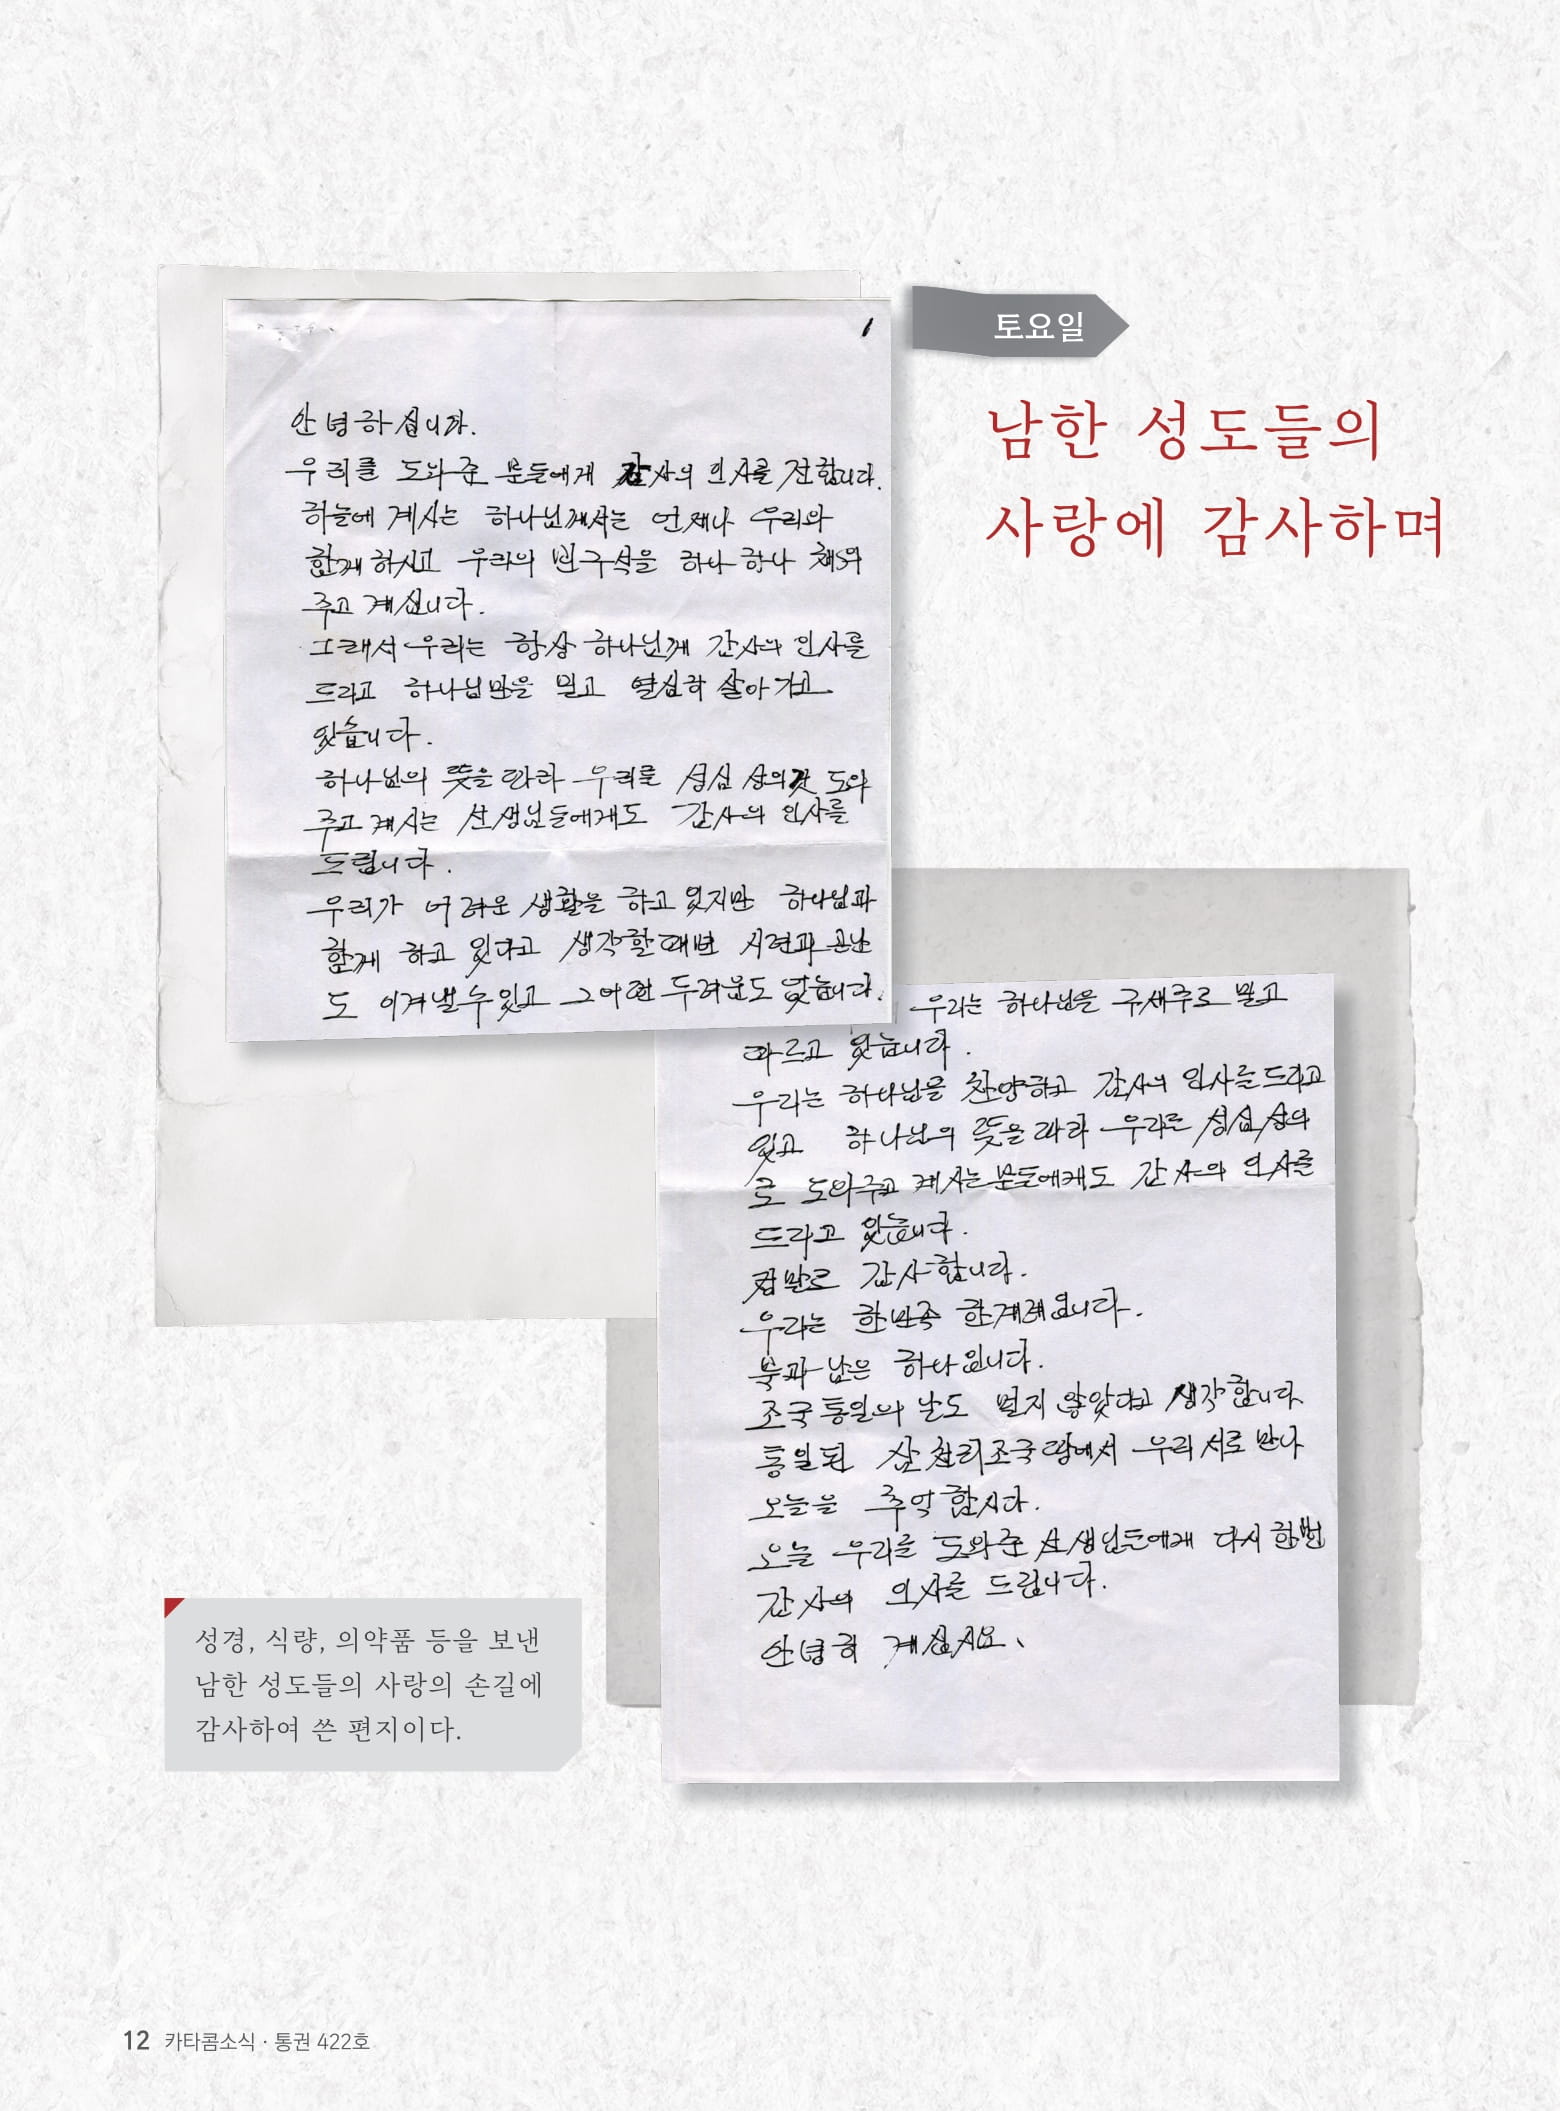 토요일
남한 성도들의
사랑에 감사하며
1
안녕하십니까.
우리를 도와준 분들에게 감사의 인사를 전합니다.
하늘에 계시는 하나님께서는 언제나 우리와
함께 하시고 우리의 빈구석을 하나 하나 채워
주고 계십니다.
그래서 우리는 항상 하나님께 감사의 인사를
드리고 하나님만을 믿고 열심히 살아가고
있습니다.
하나님의 뜻을 따라 우리를 성심 성의껏 도와
주고 계시는 선생님들에게도 감사의 인사를
드립니다.
우리가 어려운 생활을 하고 있지만 하나님과
함께 하고 있다고 생각할때면 시련과 곤난
도 이겨낼수있고 그어떤 두려움도 없습니다.
우리는 하나님을 구세주로 믿고
따르고 있습니다.
우리는 하나님을 찬양하고 감사의 인사를드리고
있고 하나님의 뜻을 따라 우리를 성심성의
로 도와주고 계시는분들에게도 감사의 인사를
드리고 있습니다.
정말로 감사합니다.
우리는 한민족 한겨레입니다.
북과 남은 하나입니다.
조국통일의 날도 멀지 않았다고 생각합니다
통일된 삼천리조국땅에서 우리서로 만나
오늘을 추억합시다.
오늘 우리를 도와준 선생님들에게 다시한번
감사의 인사를 드립니다.
안녕히 계십시요.
성경, 식량, 의약품 등을 보낸
남한 성도들의 사랑의 손길에
감사하여 쓴 편지이다.
12 카타콤소식 · 통권 422호